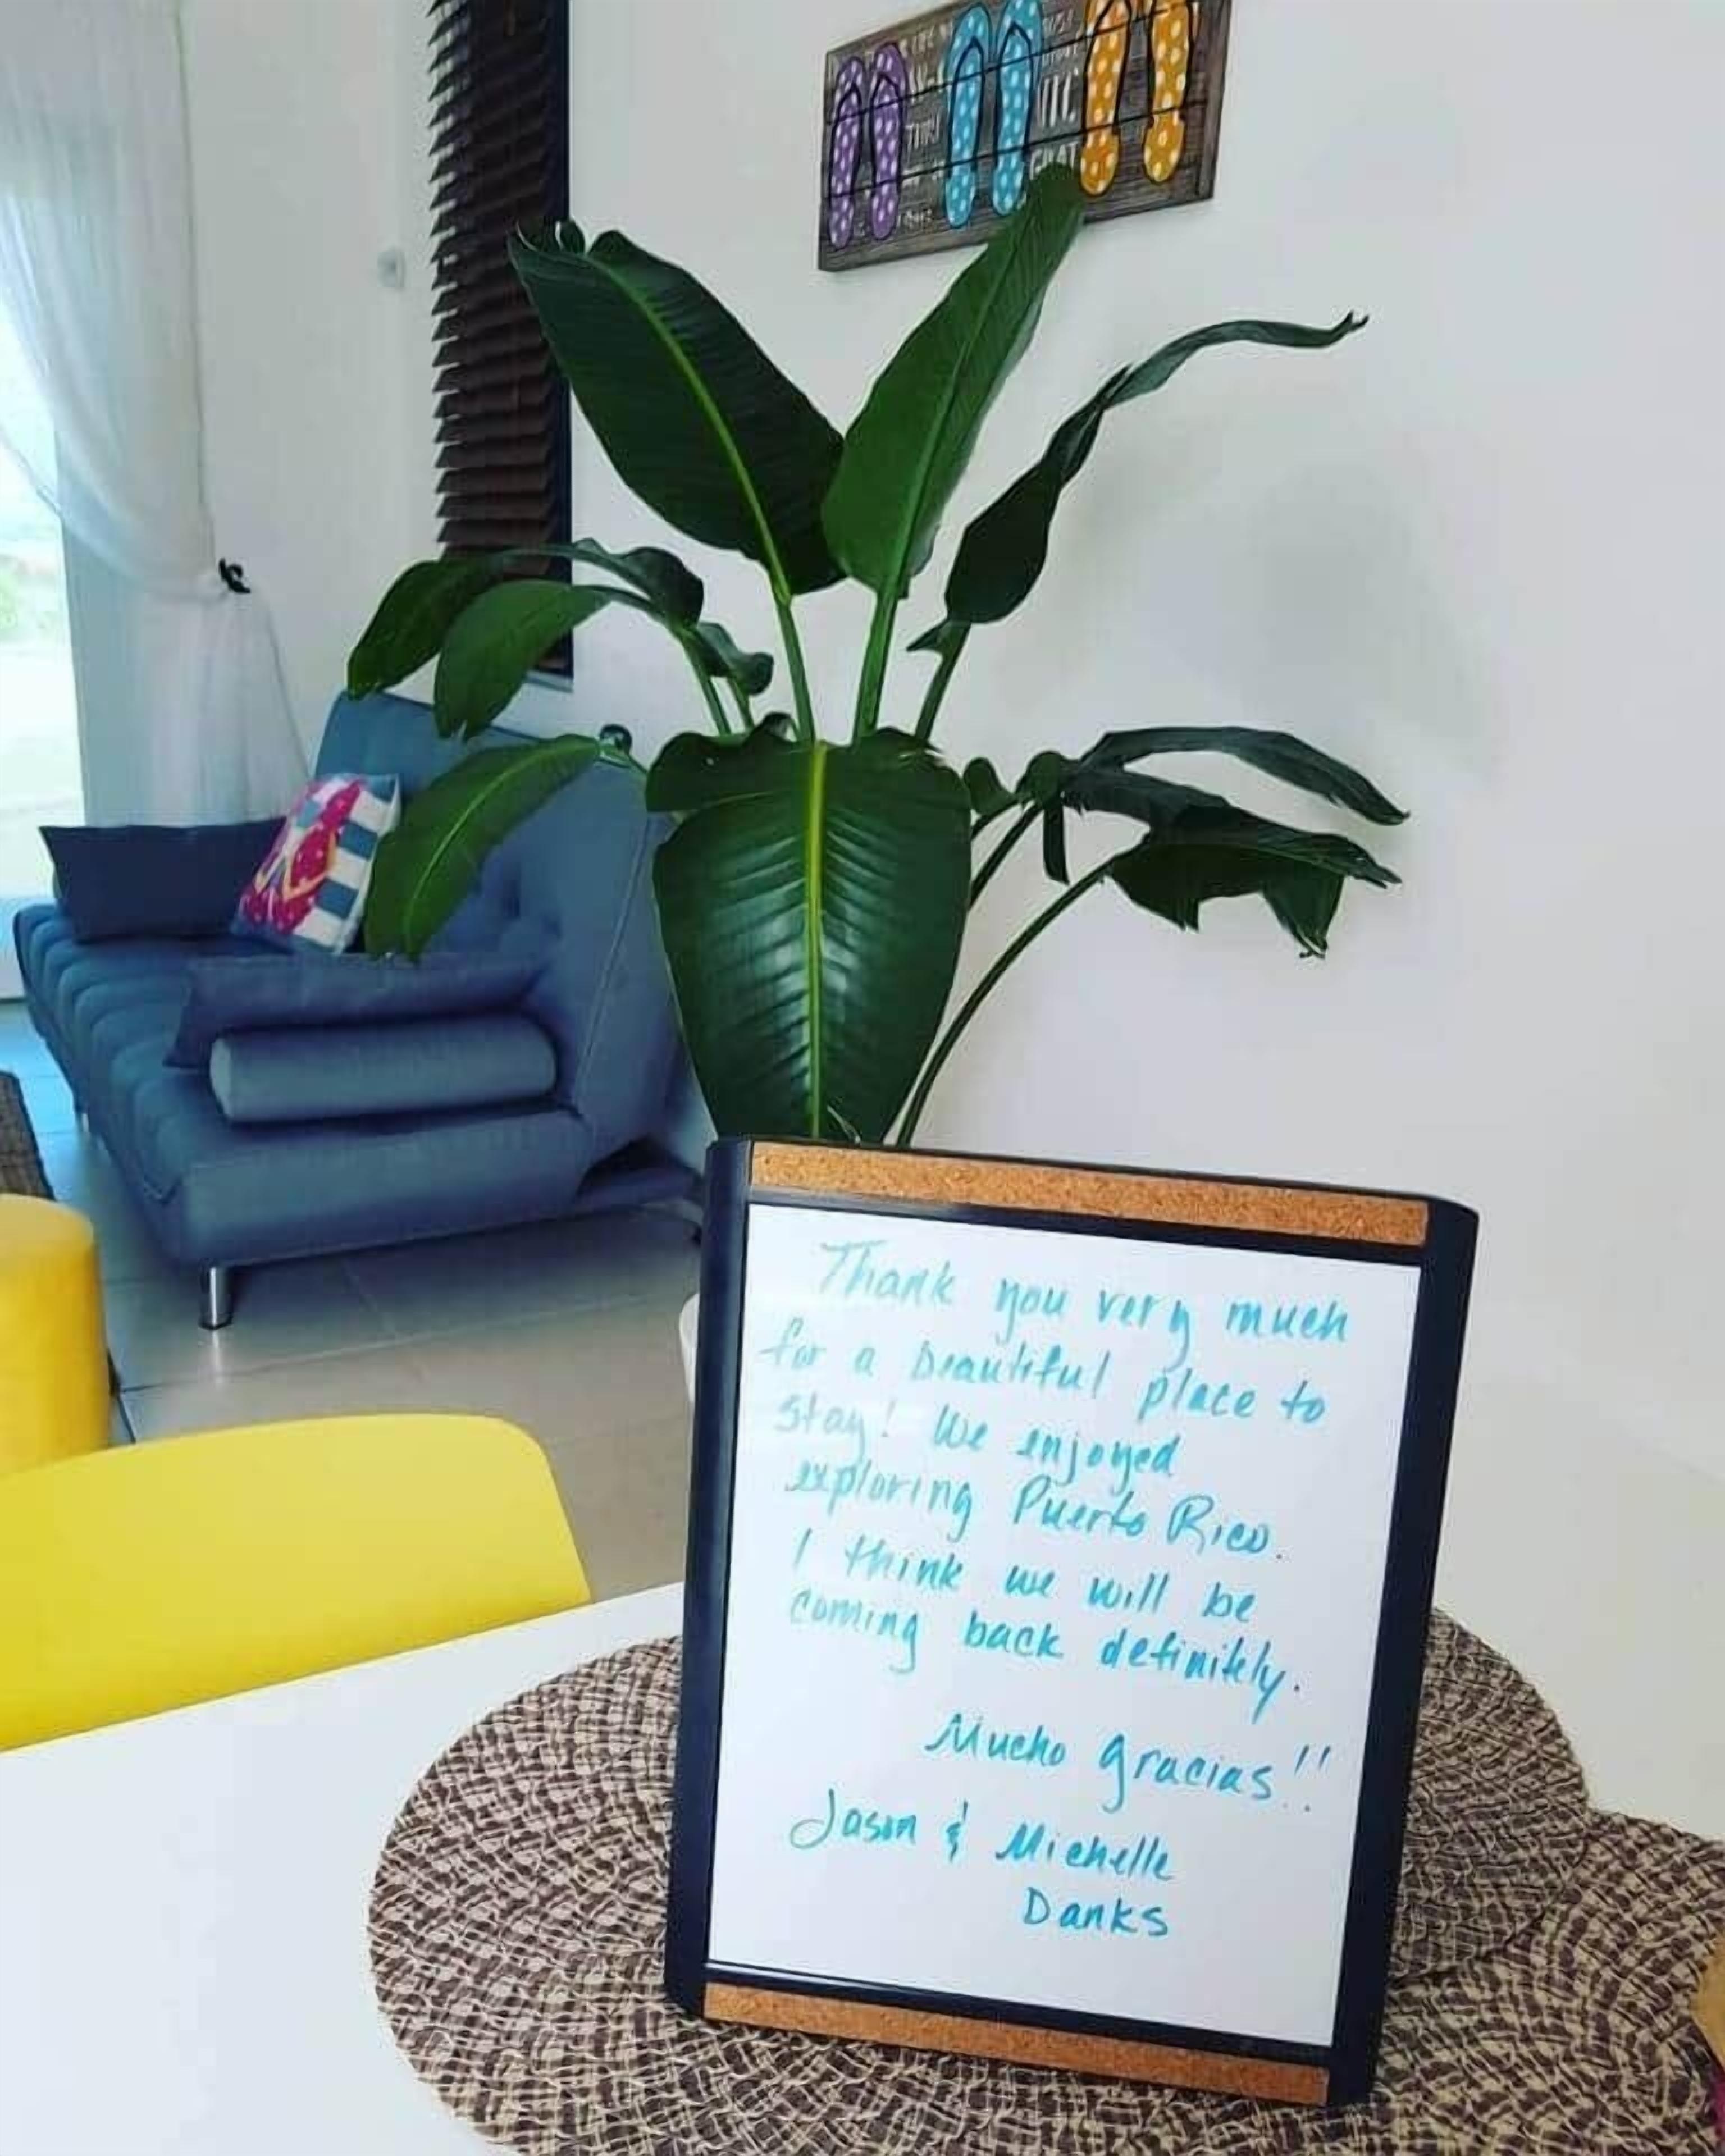 Thank you very much
for a beautiful place to
stay! We enjoyed
exploring Puerto Rico.
I think we will be
coming back definitely.
Mucho gracias!!
Jason & Michelle
Danks